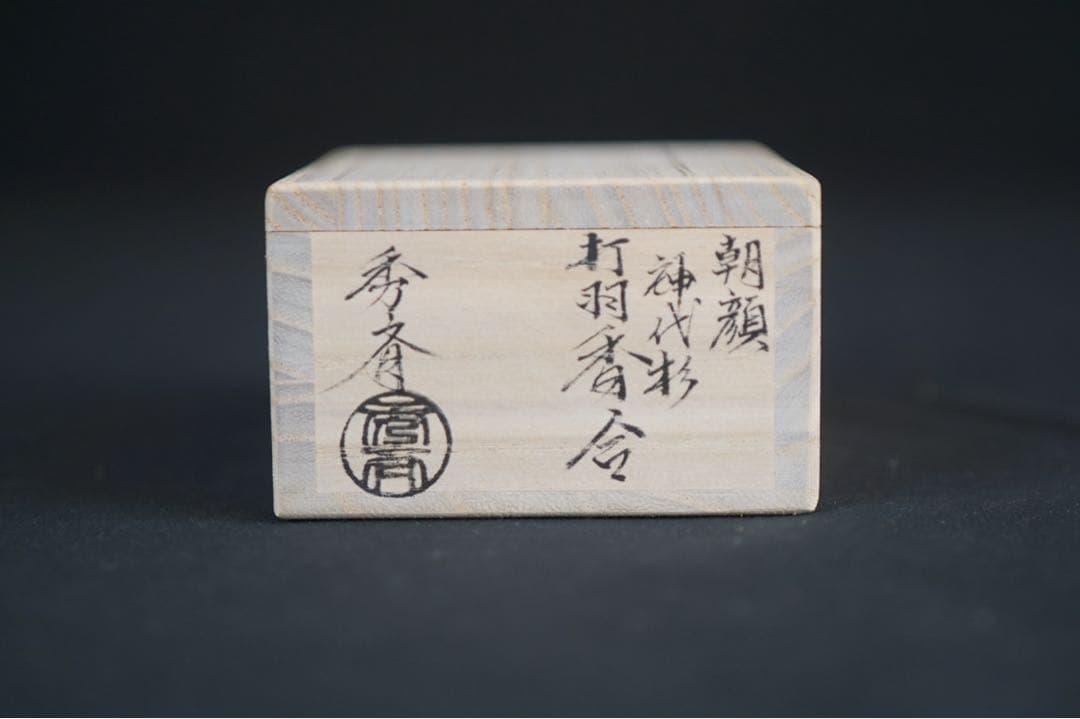 朝顔
神代杉
打羽香合
秀斎